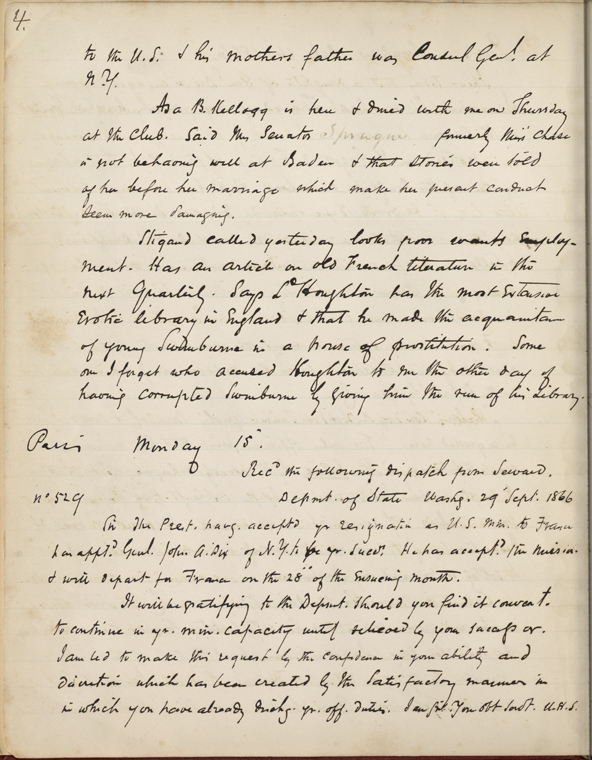 4.
to the U.S. & his mothers father was Consul Genl. at
N.Y.
Asa B. Kellogg is here & dined with me on Thursday
at the Club. Said Mrs Senator Sprague formerly Miss Chase
is not behaving well at Baden & that stories were told
of her before her marriage which make her present conduct
seem more damaging.
Stigand called yesterday looks poor wants Employ-
ment. Has an article on old French literature in the
next Quarterly. Says Ld Houghton has the most Extensive
Erotic library in England & that he made the acquaintance
of young Swinburne in a house of prostitution. Some
one I forget who accused Houghton to me the other day of
having corrupted Swinburne by giving him the run of his Library.
Paris Monday 15".
Recd the following dispatch from Seward.
No 529 Depmt. of State Washg. 29" Sept. 1866
The Prest. havg. acceptd yr resignation as U.S. Min. to France
has apptd. Genl. John A. Dix of N.Y. to be yr. Succr. He has acceptd. the mission
& will depart for France on the 28" of the ensuing month.
It will be gratifying to the Depmt. should you find it convent.
to continue in yr. min. capacity until relieved by your successor.
I am led to make this request by the confidence in your ability and
discretion which has been created by the satisfactory manner in
in which you have already dischg. yr. off. duties. I am Sir Your Obt Servt. W.H.S.